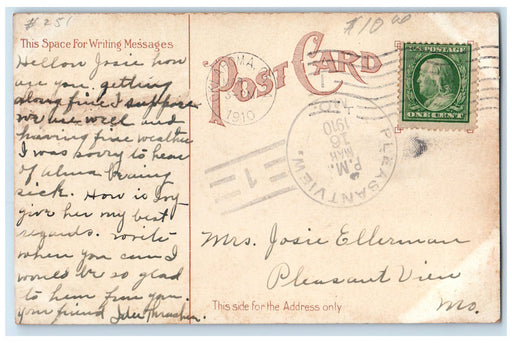 # 251
$10.00
This Space For Writing Messages
POST CARD
U.S. POSTAGE
ONE CENT
1910
PLEASANTVIEW
MO.
MAR
16
1910
P.M.
1
Hellow Josie how
are you getting
along fine I suppose
we are well and
having fine weather
I was sorry to hear
of Alma being
sick. How is Ivy
give her my best
regards. write
when you can I
would be so glad
to hear from you.
your friend Ida Thrasher.
Mrs. Josie Ellerman
Pleasant View
Mo.
This side for the Address only